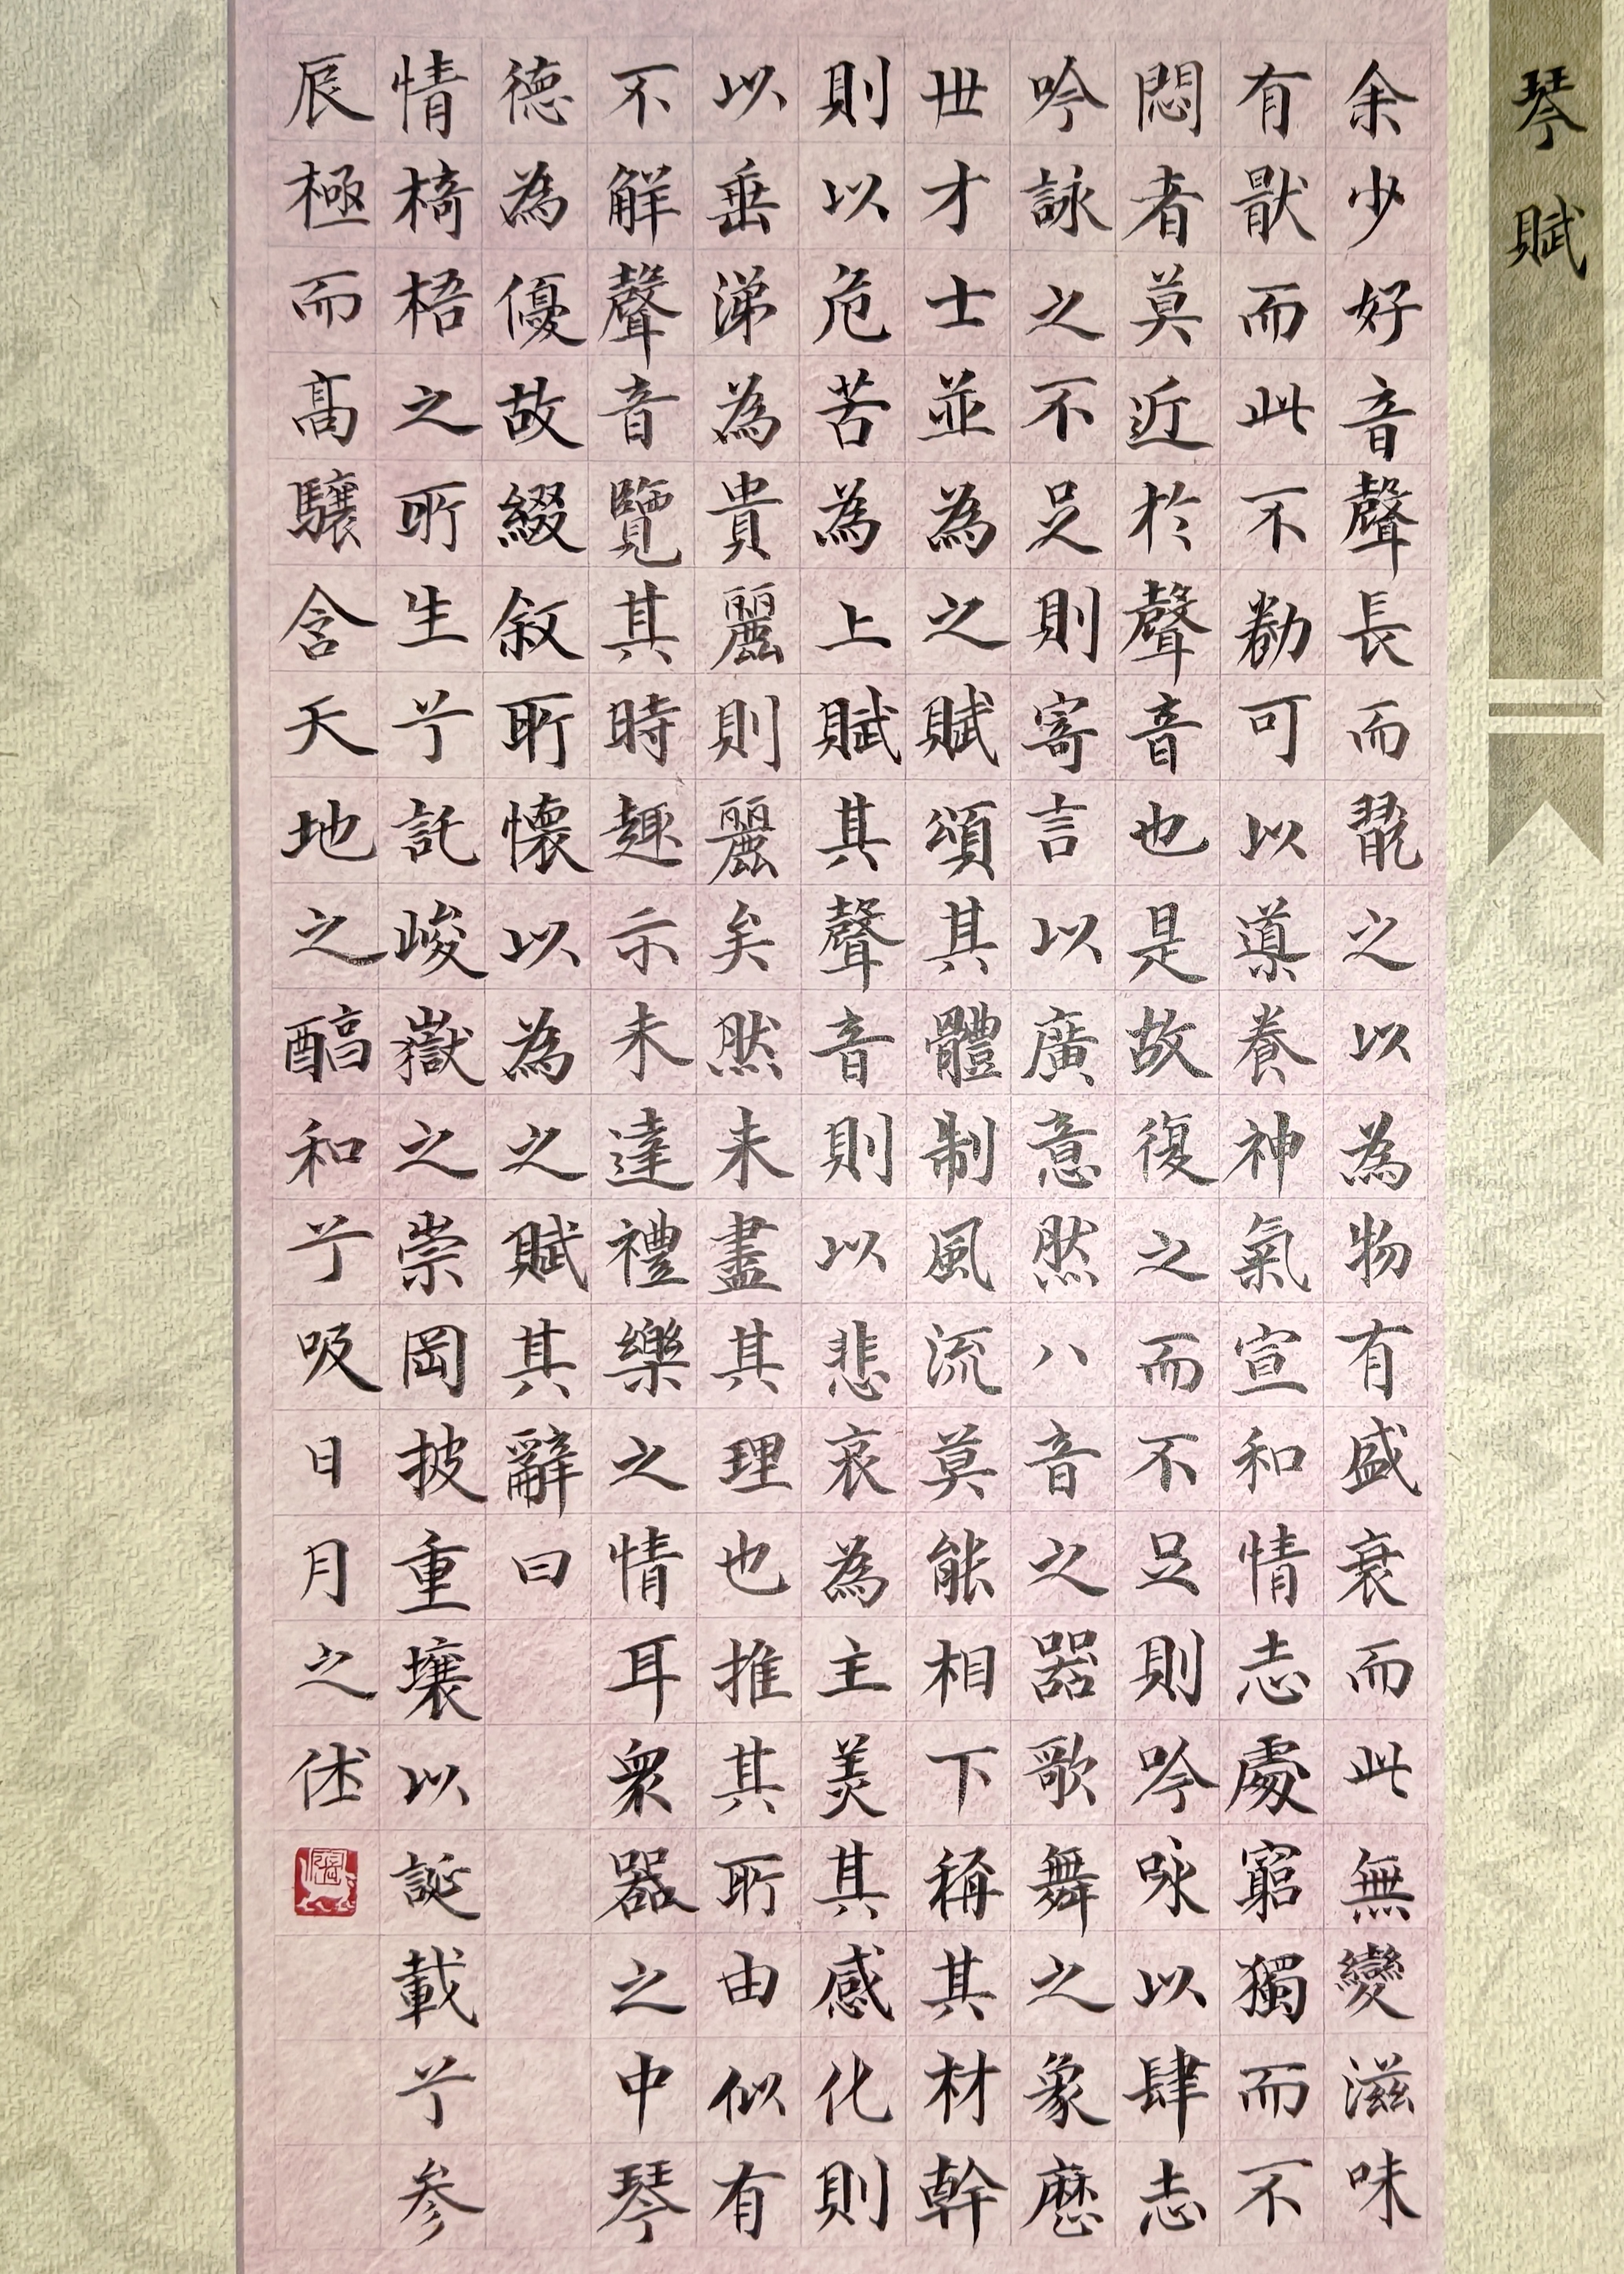 琴賦
余少好音聲長而翫之以為物有盛衰而此無變滋味
有猒而此不勌可以導養神氣宣和情志處窮獨而不
悶者莫近於聲音也是故復之而不足則吟咏以肆志
吟詠之不足則寄言以廣意然八音之器歌舞之象歷
世才士並為之賦頌其體制風流莫能相下稱其材幹
則以危苦為上賦其聲音則以悲哀為主美其感化則
以垂涕為貴麗則麗矣然未盡其理也推其所由似有
不解聲音覽其時趣亦未達禮樂之情耳衆器之中琴
德為優故綴叙所懷以為之賦其辭曰
情椅梧之所生兮託峻嶽之崇岡披重壤以誕載兮参
辰極而高驤含天地之醇和兮吸日月之